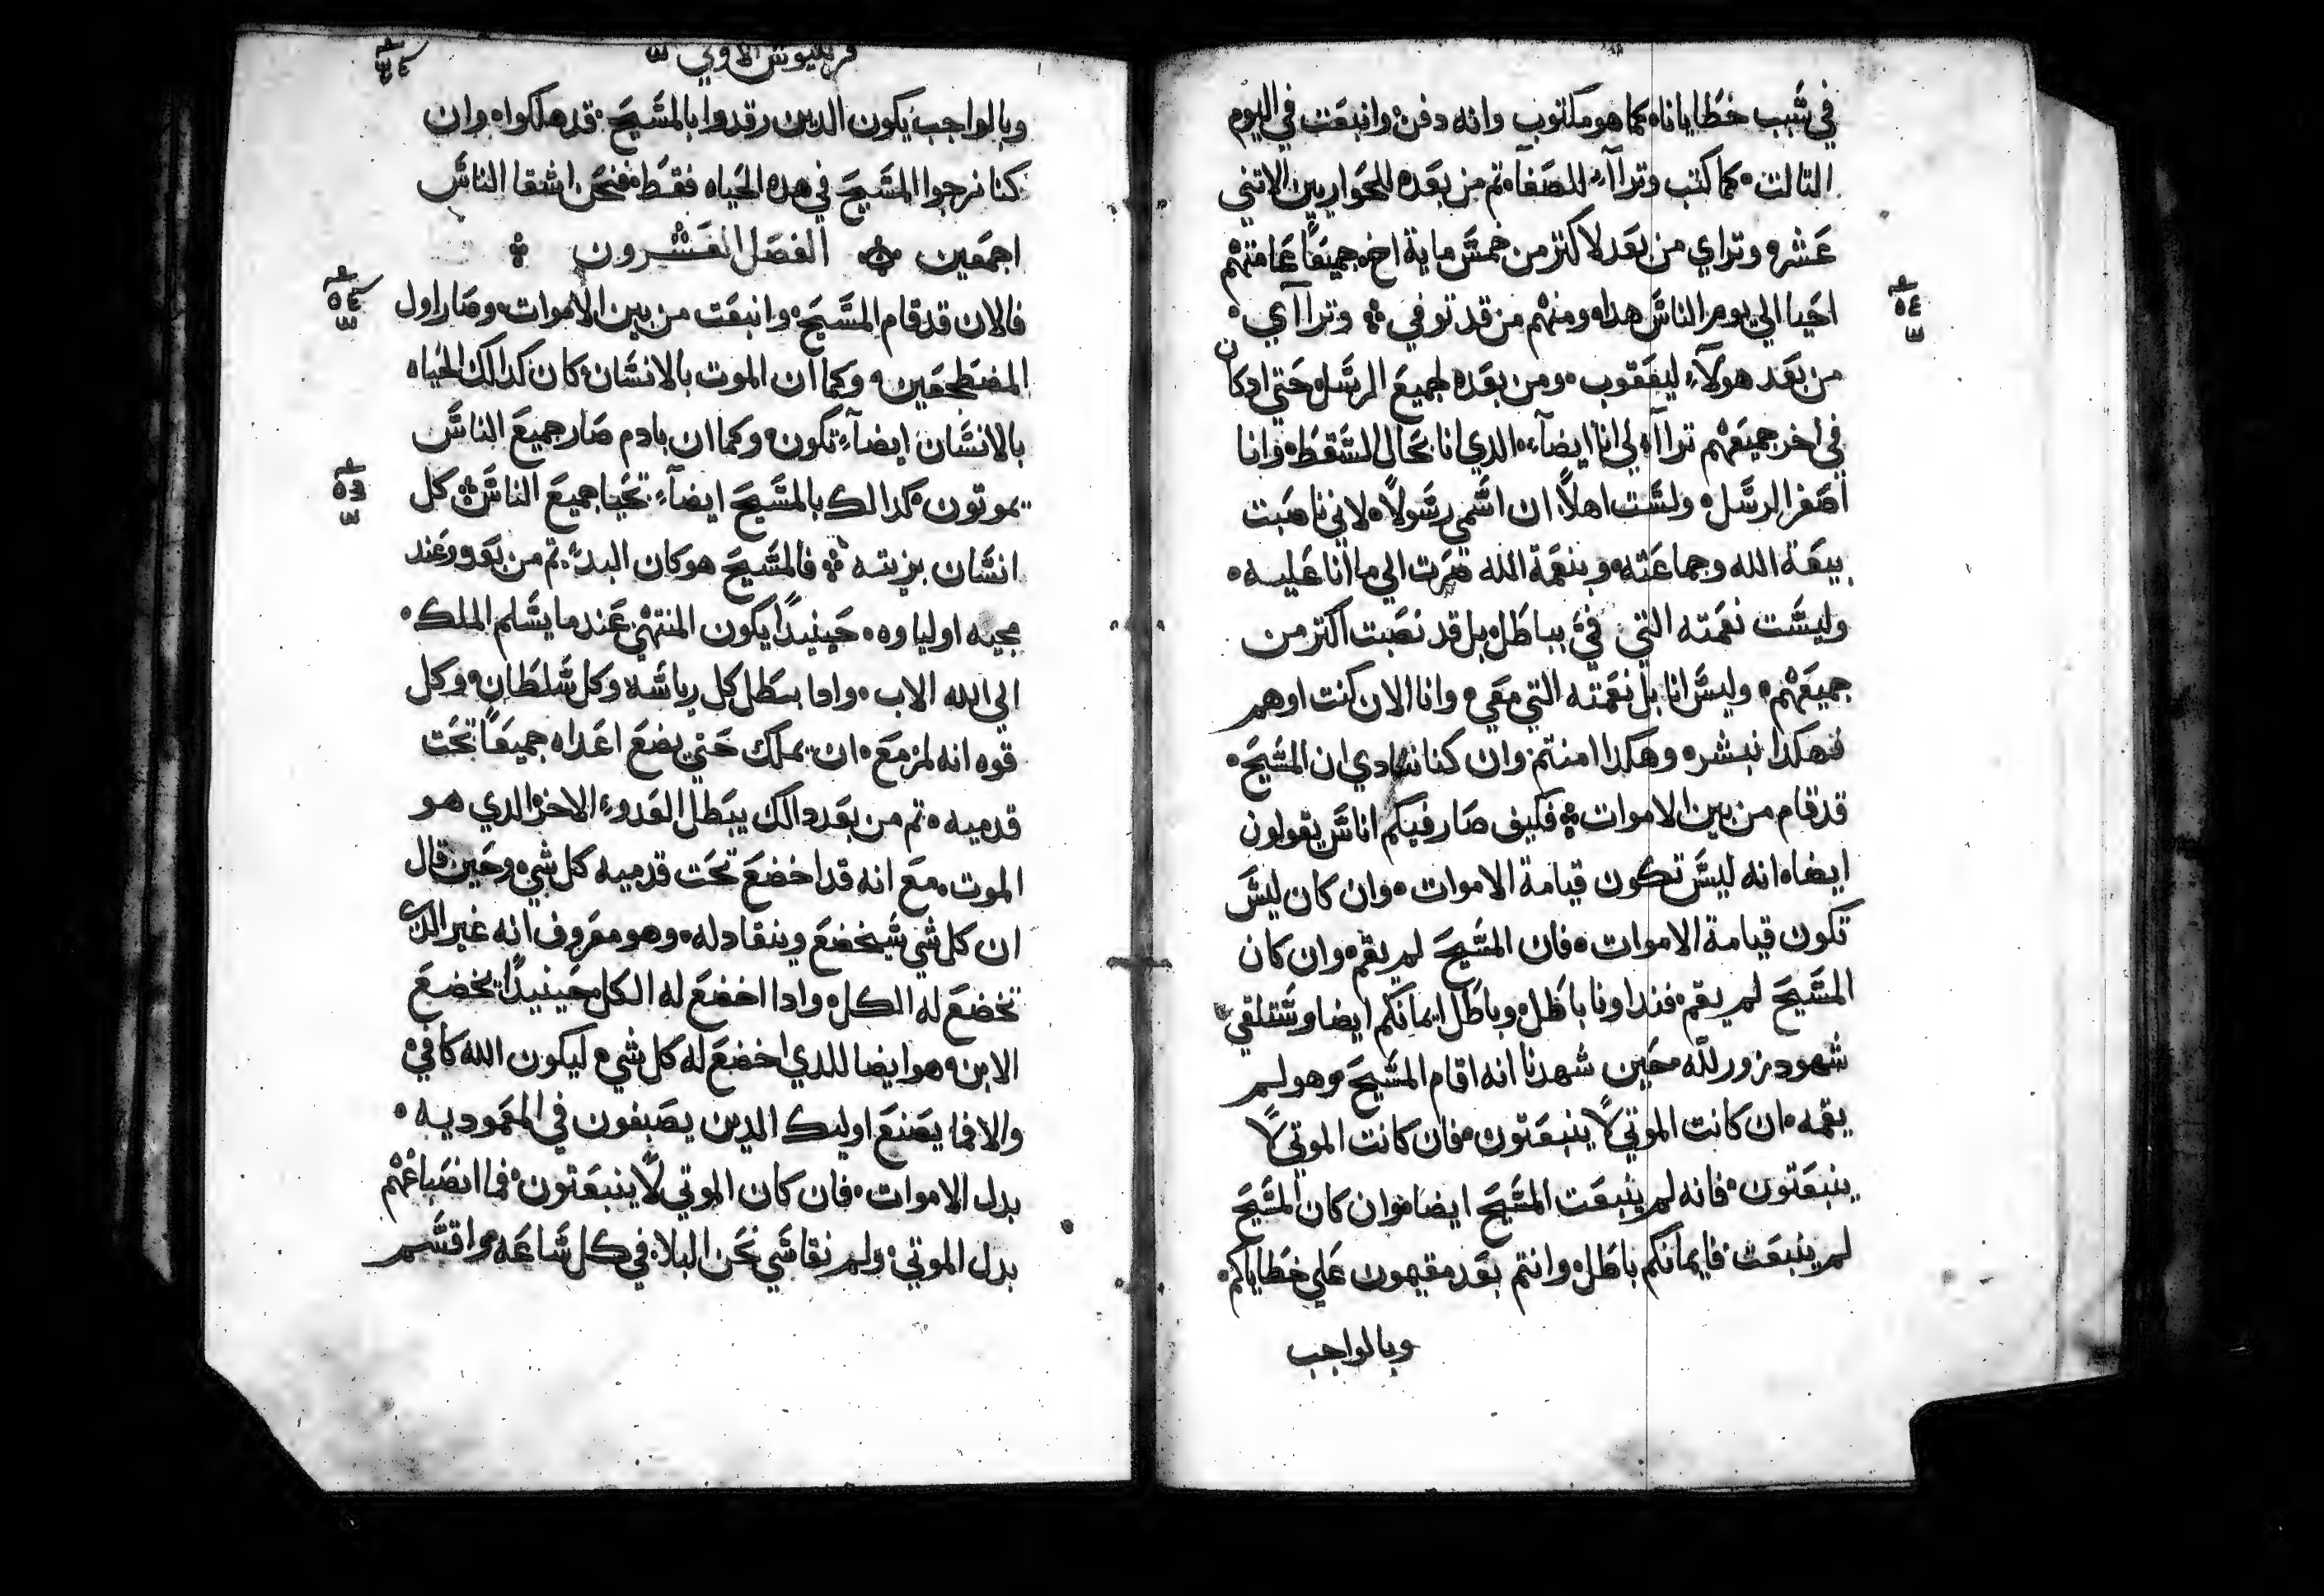 في شبب خطايانا، كما هو مكتوب وانه دفن، وانبعت في اليوم
التالت، كما كتب وتراآء للصفا، تم من بعده للحواريين الاتني
عشره وتراي من بعد لاكتر من خمش ماية اخ، جميعًا عامتهم
احيا الي يوم الناش هدا، ومنهم من قد توفي ܀ وتراآي،
من بعد هولآء ليعقوب، ومن بعده لجميع الرشل، حتي ادكان
في اخر جميعهم تراآء لي انا ايضآء، الدي انا بحال الشقط، وانا
اصغر الرشل، ولشت اهلاً ان اشمي رشولاً، لاني ناصبت
بيعة الله وجماعته، وبنعمة الله صرت الي ما انا عليه،
وليشت نعمته التي فيَّ بباطل، بل قد نصبت اكتر من
جميعهم، وليش انا بل نعمته التي معي، وانا الان كنت اوهم
فهكدا نبشر، وهكدا امنتم، وان كنا ننادي ان المشيح،
قد قام من بين الاموات ܀ فكيف صار فيكم اناش يقولون
ايضا، انه ليش تكون قيامة الاموات، وان كان ليش
تكون قيامة الاموات، فان المشيح لم يقم، وان كان
المشيح لم يقم، فنداونا باطل، وباطل ايمانكم ايضا وشنلقي
شهود زور لله، حين شهدنا انه اقام المشيح، وهو لم
يقمه، ان كانت الموتي لا ينبعتون، فان كانت الموتي لا
ينبعتون، فانه لم ينبعت المشيح ايضا، وان كان المشيح
لم ينبعت، فايمانكم باطل، وانتم بعد مقيمون علي خطاياكم،
وبالواجب
قرنتيوش الاولي
وبالواجب يكون الدين رقدوا بالمشيح، قد هلكوا، وان
كنا نرجوا المشيح في هده الحياه فقط، فنحن اشقا الناش
اجمعين ܀ الفصل العشرون ܀
فالان قد قام المشيح، وانبعت من بين الاموات، وصار اول
المضطجعين، وكما ان الموت بالانشان، كان كدالك الحياه
بالانشان ايضآء تكون، وكما ان بادم صار جميع الناش
يموتون، كدالك بالمشيح ايضآء تحيا جميع الناش ܀ كل
انشان بزيته ܀ فالمشيح هو كان البدء، تم من بعده وعند
مجيه اولياوه، حينيدًا يكون المنتهي، عند ما يشلم الملك،
الي الله الاب، وادا بطل كل رياشه وكل شلطان، وكل
قوه انه لمزمع، ان يملك حتي يضع اعداه جميعًا تحت
قدميه، تم من بعد دالك يبطل العدوء الاخر الدي هو
الموت، مع انه قد اخضع تحت قدميه كل شي، وحين قال
ان كل شي شيخضع وينقاد له، وهو معروف انه غير الدي
تخضع له الكل، وادا اخضع له الكل، حينيدًا يخضع
الابن، هو ايضا للدي اخضع له كل شي، ليكون الله كافي
والا فما يصنع اوليك الدين يصبغون في المعموديه،
بدل الاموات، فان كان الموتي لا ينبعتون، فما انصباغهم
بدل الموتي، ولم نقاشي نحن البلاء في كل شاعه، واقشم